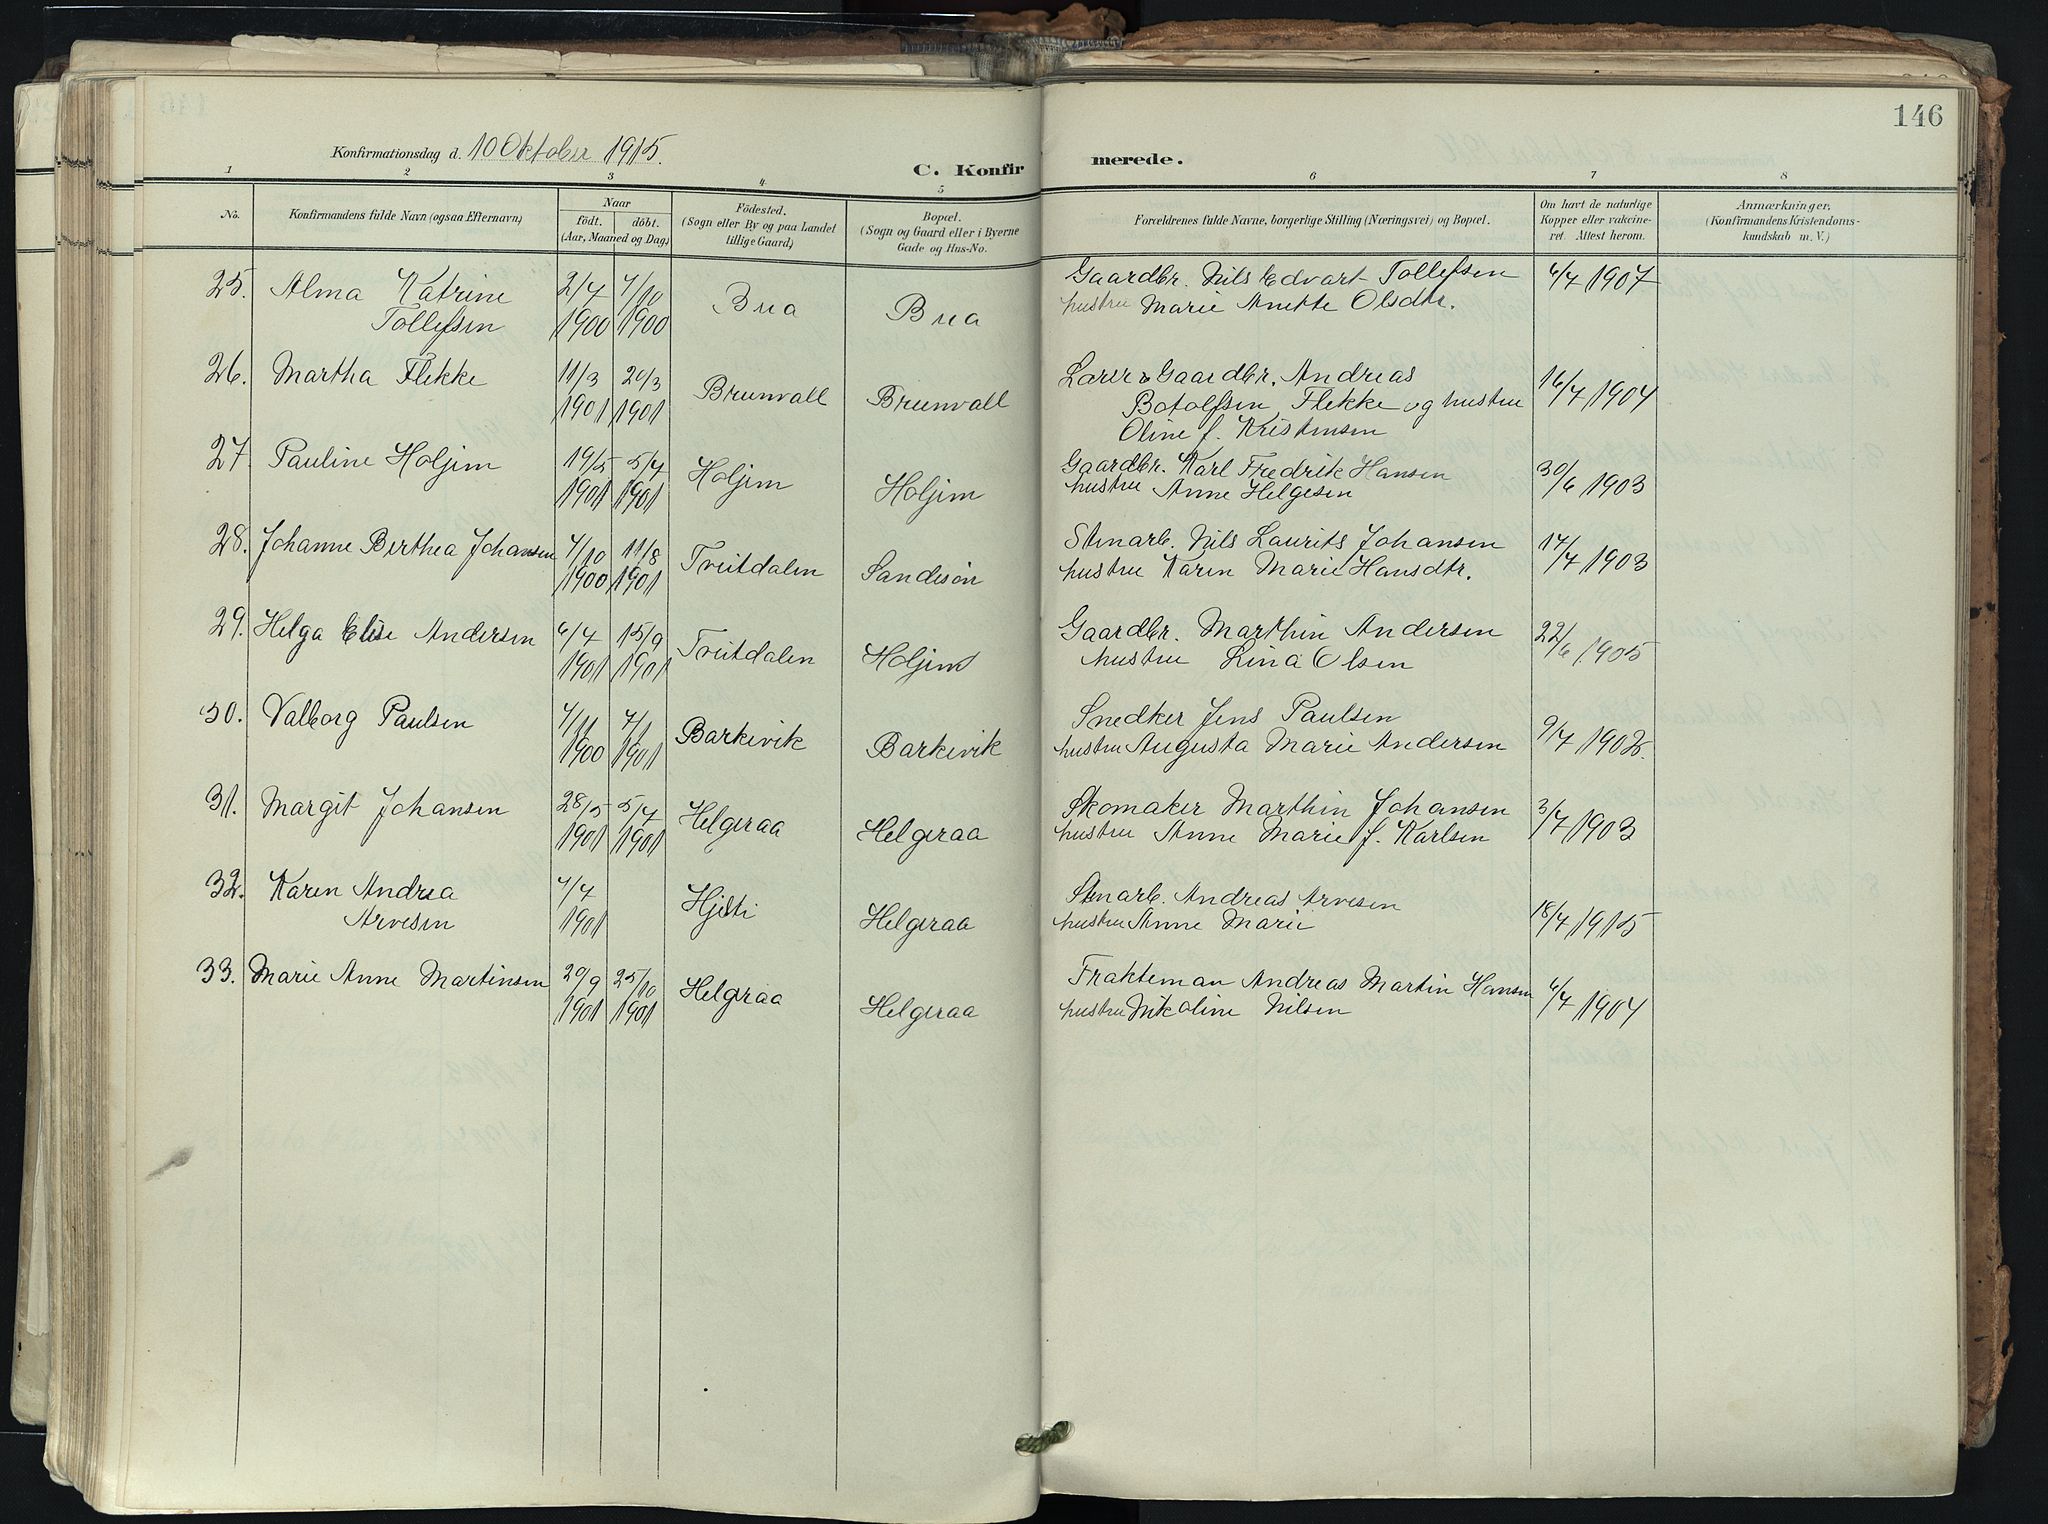 146
Konfirmationsdag d. 10 Oktober 1915.
C. Konfirmerede.
1 2 3 4 5 6 7 8
No. Konfirmandens fulde Navn (ogsaa Efternavn) Naar födt. döbt. (Aar, Maaned og Dag) Födested. (Sogn eller By og paa Landet tillige Gaard) Bopæl. (Sogn og Gaard eller i Byerne Gade og Hus-No. Forældrenes fulde Navne, borgerlige Stilling (Næringsvei) og Bopæl. Om havt de naturlige Kopper eller vakcineret. Attest herom. Anmærkninger, (Konfirmandens Kristendomskundskab m. V.)
25. Alma Katrine Tollefsen 2/4 1900 7/10 1900 Bua Bua Gaardbr. Nils Edvart Tollefsen
hustru Marie Anette Olsdtr. 6/7 1907
26. Martha Flekke 11/3 1901 20/3 1901 Brunvall Brunvall Lærer & Gaardbr. Andreas
Botolfsen Flekke og hustru
Oline f. Kristensen 16/7 1904
27. Pauline Holjem 19/5 1901 5/7 1901 Holjem Holjem Gaardbr. Karl Fredrik Hansen
hustru Anne Helgesen 30/6 1903
28. Johanne Berthea Johansen 7/10 1900 11/8 1901 Tveitdalen Sandeson Stenarb. Nils Laurits Johansen
hustru Karen Marie Hansdtr. 17/7 1903
29. Helga Elise Andersen 6/7 1901 15/9 1901 Tveitdalen Holjem Gaardbr. Marthin Andersen
hustru Lina Olsen 22/6 1905
30. Valborg Paulsen 4/11 1900 7/1 1901 Barkevik Barkevik Snedker Jens Paulsen
hustru Augusta Marie Andersen 9/7 1902.
31. Margit Johansen 28/5 1901 5/7 1901 Helgeraa Helgeraa Skomaker Marthin Johansen
hustru Anne Marie f. Karlsen 3/7 1903
32. Karen Andrea Arvesen 4/4 1901 Helgeraa Stenarb. Andreas Arvesen
hustru Anne Marie 18/7 1915
33. Marie Anne Martinsen 20/9 1901 25/10 1901 Helgeraa Helgeraa Frakteman Andreas Martin Hansen
hustru Nikoline Nilsen 6/7 1904